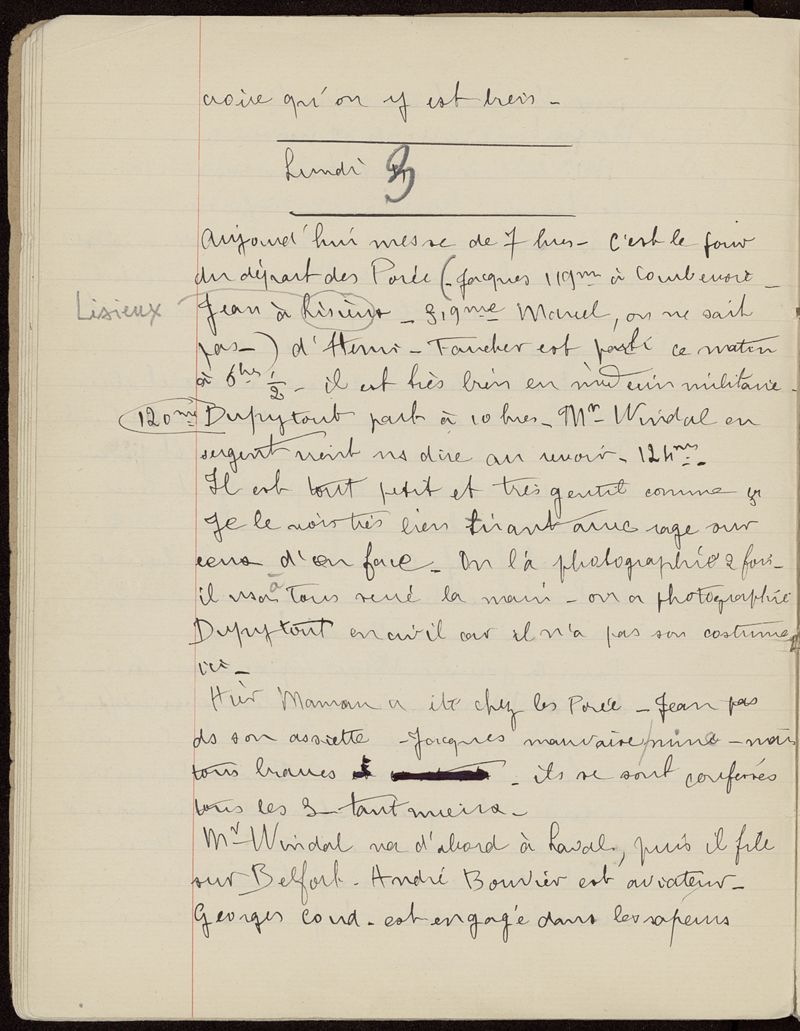 croire qu'on y est bien -
Lundi 3
Aujourd'hui messe de 7 hres - c'est le jour
du départ des Porée (Jacques 119me à Courbevoie -
Lisieux Jean à Lisieux - 319me Marcel, on ne sait
pas -) d'Henri - Faucher est parti ce matin
à 6hes 1/2 - il est très bien en médecin militaire -
120me Dupytout part à 10 hres - Mr Windal en
sergent vient ns dire au revoir - 124me -
Il est tout petit et très gentil comme
Je le vois très bien tirant avec rage sur
ceux d'en face - On l'a photographié 2 fois -
il ns a à tous serré la main - on a photographié
Dupytout en civil car il n'a pas son costume
ici -
Hier Maman a été chez les Porée - Jean pas
ds son assiette - Jacques mauvaise mine - mais
tous braves - ils se sont confessés
tous les 3 - tant mieux -
Mr Windal va d'abord à Laval, puis il file
sur Belfort - André Bouvier est aviateur -
Georges Coud - est engagé dans les sapeurs